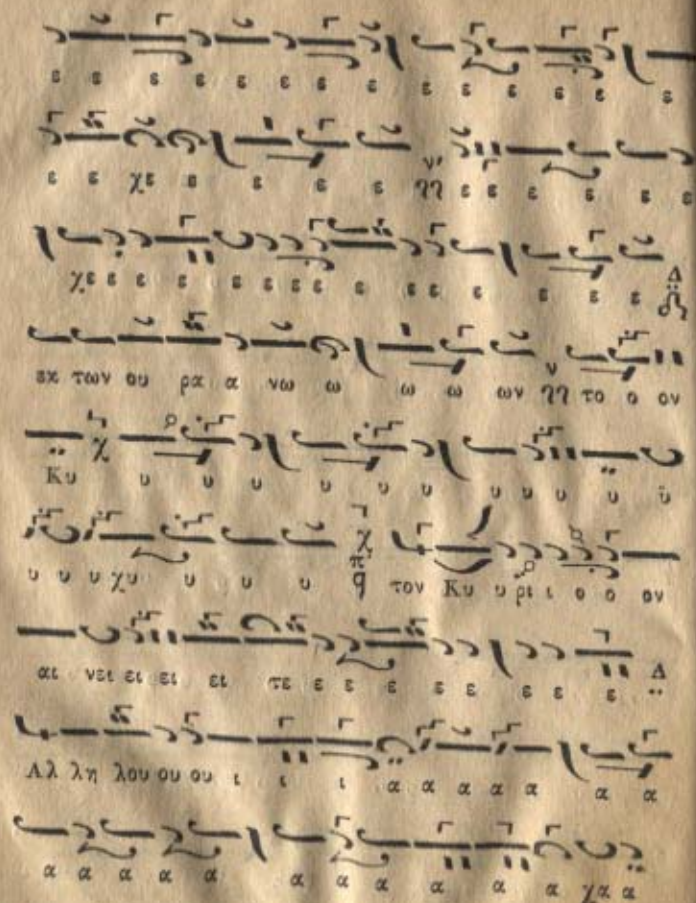 ε ε ε ε ε ε ε ε ε ε ε ε ε ε
ε ε χε ε ε ε ε νι ηη ε ε ε ε ε ε
χε ε ε ε ε ε ε ε ε ε ε ε ε ε Δ
εκ των ου ρα α νω ω ω ω ων ν ηη το ο ον
Κυ χ υ υ υ υ υ υ υ υ υ υ ϋ
υ υ υ χυ υ υ υ χ π q τον Κυ υ ρι ι ο ο ον
αι νει ει ει ει τε ε ε ε ε ε ε ε ε Δ
Αλ λη λου ου ου ι ι ι α α α α α α α
α α α α α α α α α α α χα α